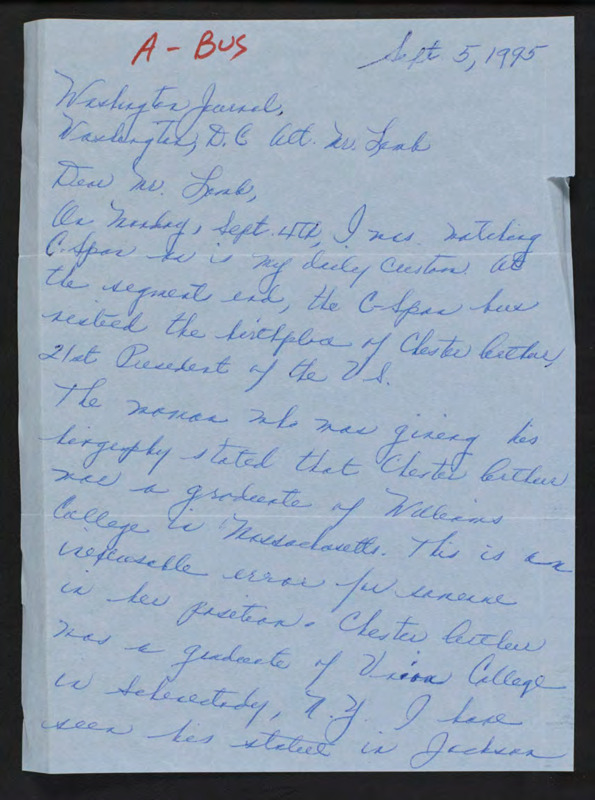 A - BUS
Sept 5, 1995
Washington Journal,
Washington, D.C Att. Mr. Lamb
Dear Mr. Lamb,
On Monday, Sept. 4th, I was watching
C-Span as is my daily custom. At
the segment end, the C-Span bus
visited the birthplace of Chester Arthur,
21st President of the U S.
The woman who was giving his
biography stated that Chester Arthur
was a graduate of Williams
College in Massachusetts. This is an
inexcusable error for someone
in her position. Chester Arthur
was a graduate of Union College
in Schenectady, N.Y. I have
seen his statue in Jackson